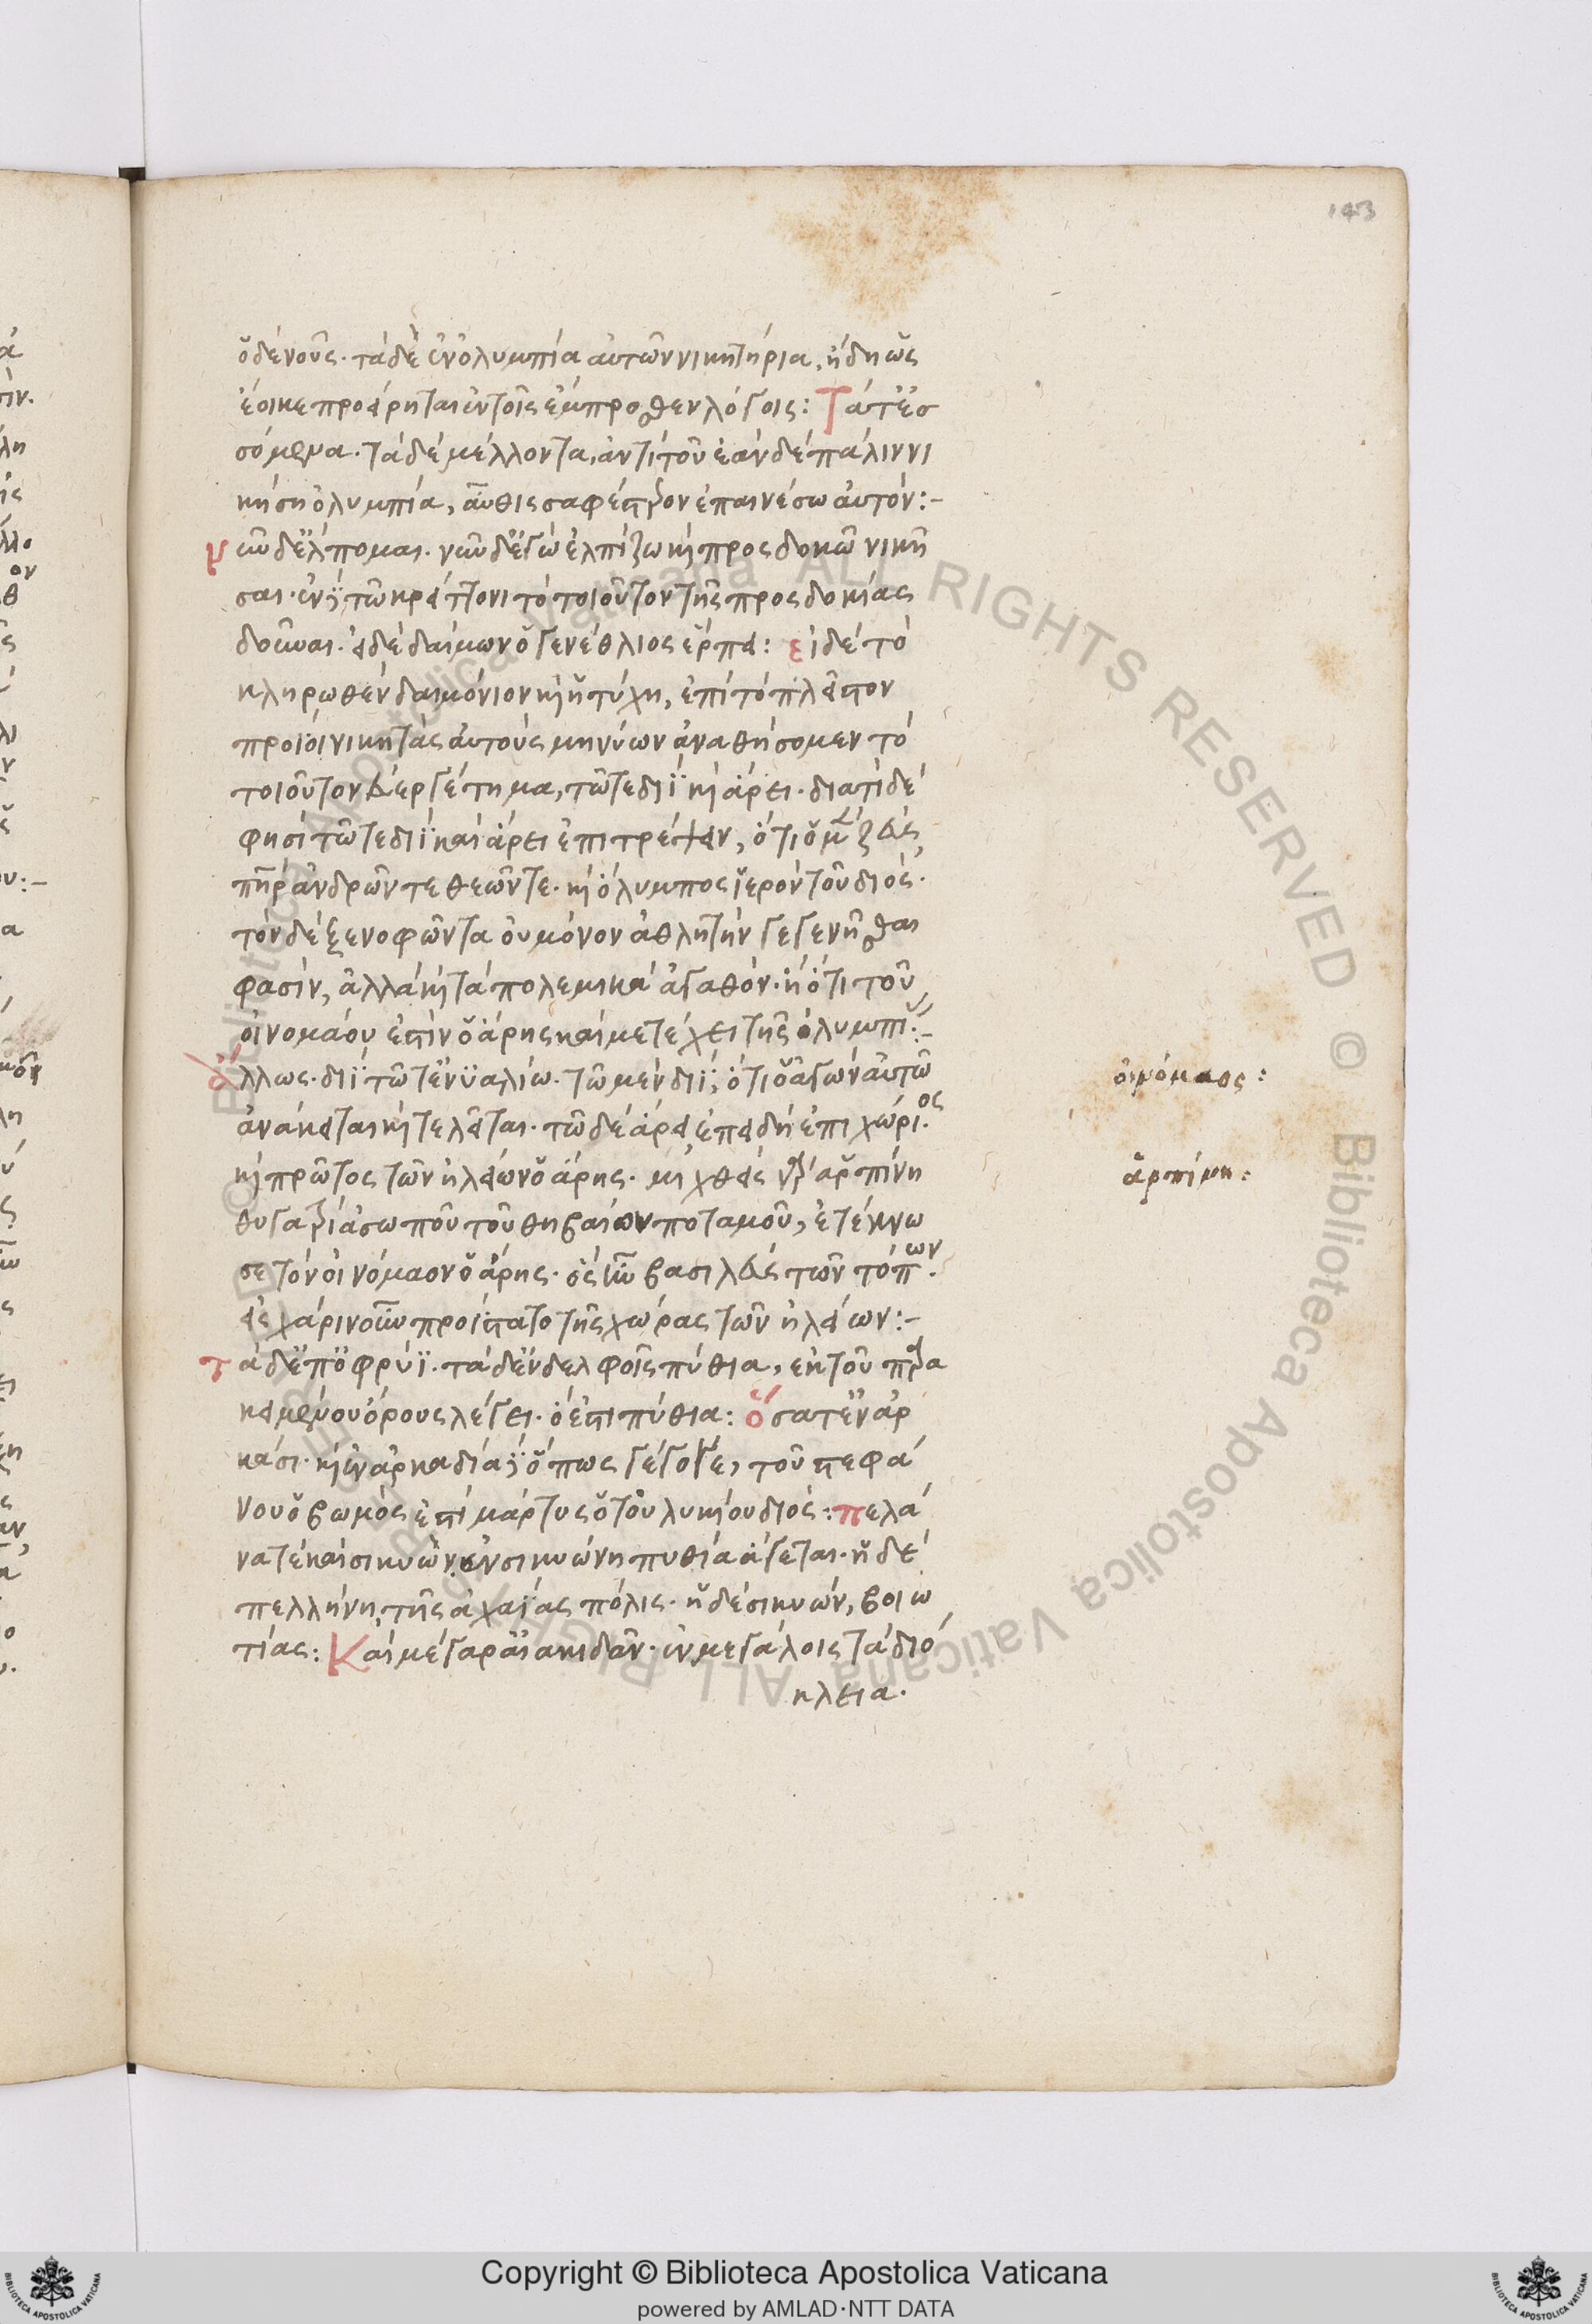 143
ὁ δὲ νοῦς· τὰ δὲ ἐν ὀλυμπία αὐτῶν νικητήρια, ἤδη ὡς
ἔοικε προείρηται ἐν τοῖς ἔμπροσθεν λόγοις: Τά τ' ἐσ
σόμενα· τὰ δὲ μέλλοντα, ἀντὶ τοῦ ἐὰν δὲ πάλιν νι
κήση ὀλυμπία, αὖθις σαφέστερον ἐπαινέσω αὐτόν:-
νῦν δ' ἔλπομαι· νῦν δ' ἐγὼ ἐλπίζω καὶ προσδοκῶ νικῆ
σαι· ἐν τῶ κρείττονι τὸ τοιοῦτον τῆς προσδοκίας
δοῦναι· εἰ δὲ δαίμων ὁ γενέθλιος ἕρποι: εἰ δὲ τὸ
κληρωθὲν δαιμόνιον καὶ ἡ τύχη, ἐπὶ τὸ πλεῖστον
προΐοι νικητὰς αὐτοὺς μηνύων ἀναθήσομεν τὸ
τοιοῦτον εὐεργέτημα, τῶ τε διῒ καὶ ἄρει· διατί δέ
φησι τῶ τε διῒ καὶ ἄρει ἐπιτρέψειν, ὅτι ὁ μὲν ζεὺς
πατὴρ ἀνδρῶν τε θεῶν τε· καὶ ὄλυμπος ἱερὸν τοῦ διός·
τὸν δὲ ξενοφῶντα οὐ μόνον ἀθλητὴν γεγενῆσθαι
φασὶν, ἀλλὰ καὶ τὰ πολεμικὰ ἀγαθόν· ἢ ὅτι τοῦ
οἰνομάου ἐστὶν ὁ ἄρης καὶ μετέχει τῆς ὀλυμπίας:-
ἄλλως· διῒ τῶ τ' ἐνυαλίω· τῶ μὲν διῒ, ὅτι ὁ ἀγὼν αὐτῶ
ἀνάκειται καὶ τελεῖται· τῶ δὲ ἄρει ἐπειδὴ ἐπιχώριος
καὶ πρῶτος τῶν ἠλείων ὁ ἄρης· μιχθεὶς γὰρ ἁρπίνη
θυγατρὶ ἀσωποῦ τοῦ θηβαίων ποταμοῦ, ἐτέκνω
σε τὸν οἰνόμαον ὁ ἄρης· ὃς ἦν βασιλεὺς τῶν τόπων·
εἰς χάριν οὖν προΐστατο τῆς χώρας τῶν ἠλείων:-
τὰ δ' ἐπ' ὀφρύϊ· τὰ δ' ἐν δελφοῖς πύθια, ἐκ τοῦ παρα
κειμένου ὄρους λέγει· ὅ ἐστι πύθια: ὅσα τ' ἐν ἀρ
κάσι· καὶ ἐν ἀρκαδία ὅπως γέγονε, τοῦ στεφά
νου ὁ βωμός ἐστι μάρτυς ὁ τοῦ λυκίου διός: πελά
να τὲ καὶ σικυών· ἐν σικυώνη πυθία ἄγεται· ἡ δὲ
πελλήνη, τῆς ἀχαΐας πόλις· ἡ δὲ σικυών, βοιω
τίας: Καὶ μέγαρ' αἰακιδᾶν· ἐν μεγάλοις τὰ διό
κλεια·
οἰνόμαος:
ἁρπίνη:
Copyright © Biblioteca Apostolica Vaticana
powered by AMLAD·NTT DATA
© Biblioteca Apostolica Vaticana ALL RIGHTS RESERVED © Biblioteca Apostolica Vaticana ALL RIGHTS RESERVED